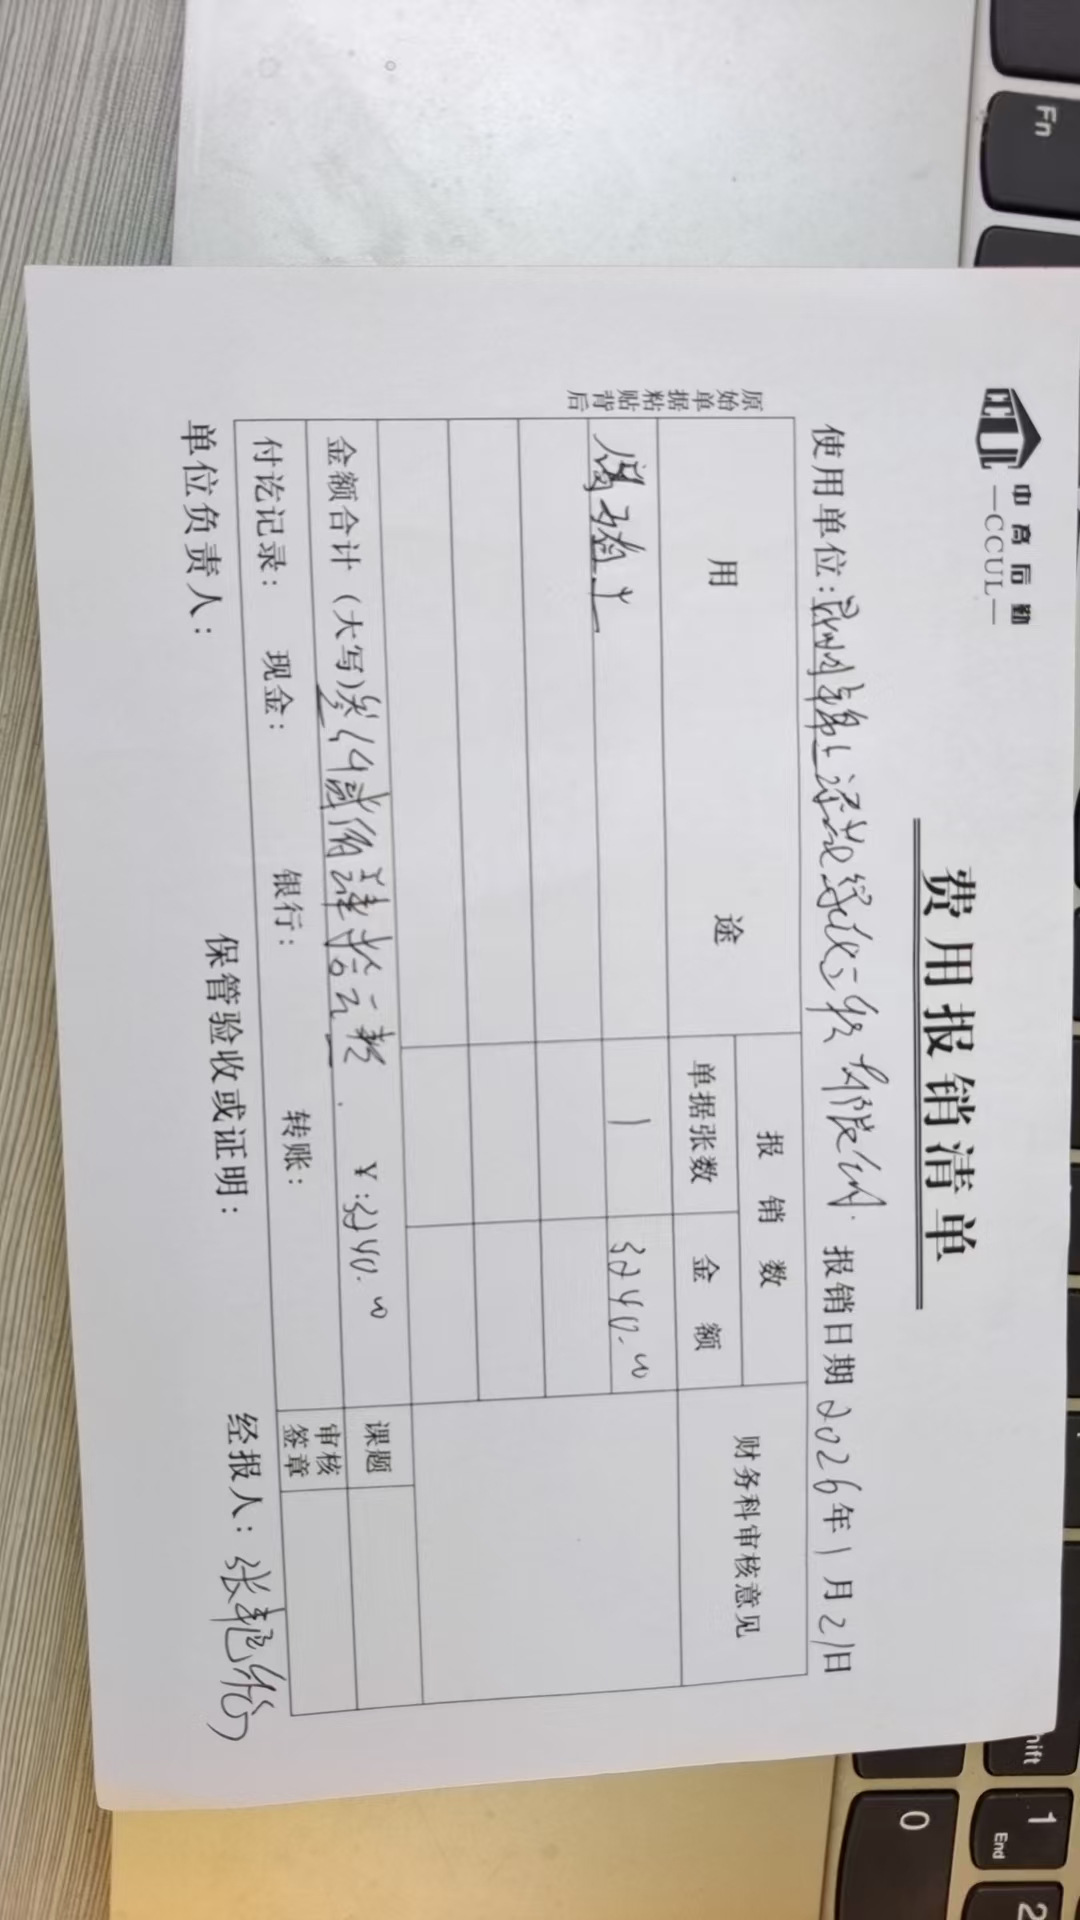 中高后勤
—CCUL—
费用报销清单
使用单位: 报销日期 2026年1月21日
原始单据粘贴背后
用途
报销数
财务科审核意见
单据张数
金额
1
3240.00
金额合计（大写）叁仟贰佰肆拾元整. ¥:3240.00
课题
付讫记录: 现金: 银行: 转账:
审核签章
单位负责人: 保管验收或证明: 经报人: 张艳
Fn
Shift
0
1
End
2